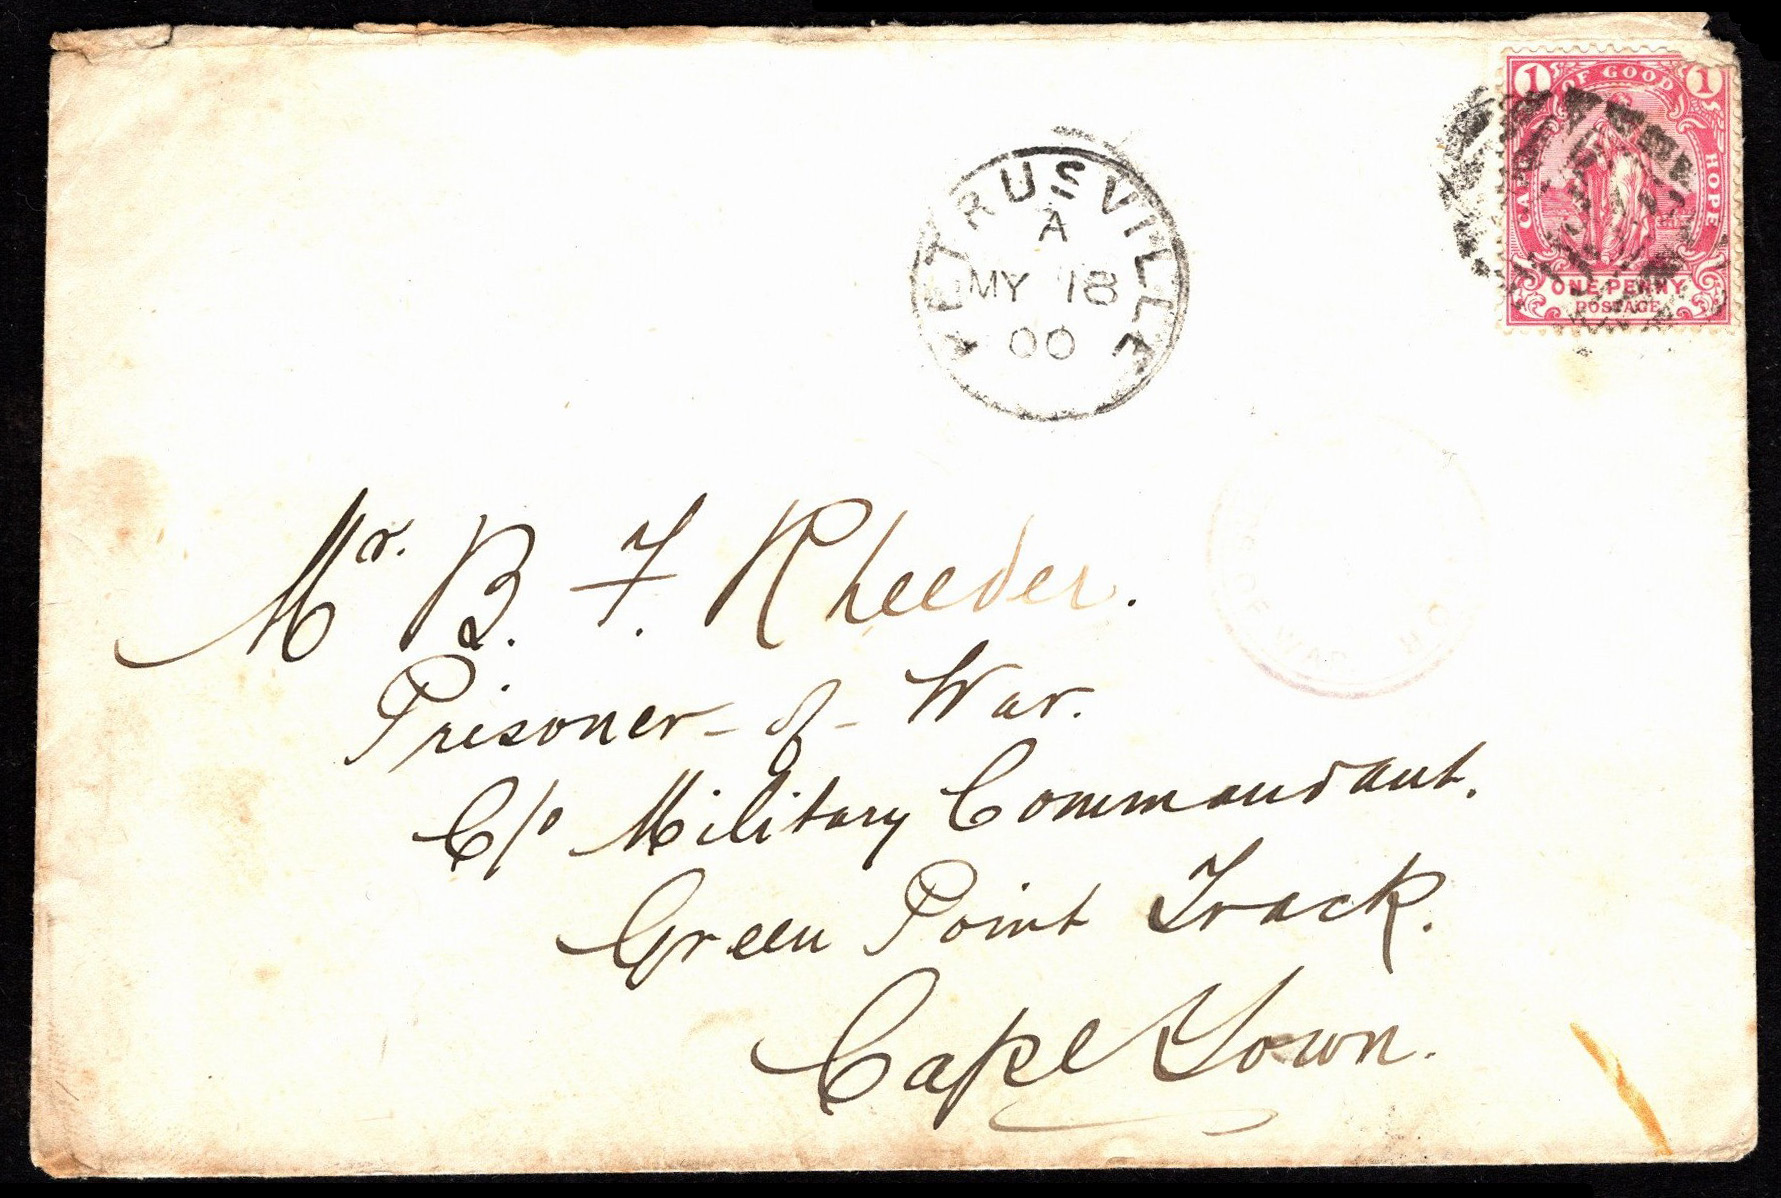 1 OF GOOD 1
CAPE HOPE
ONE PENNY
POSTAGE
PETRUSVILLE
A
MY 18
00
Mr. B. F. Rheeder.
Prisoner-of-War.
C/o Military Commandant.
Green Point Track.
Cape Town.
OF WAR